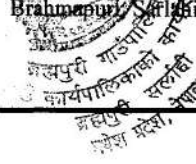 Brahmapuri, Sarlahi
ब्रह्मपुरी गाउँपालिका
कार्यपालिकाको का
ब्रह्मपुरी सर्लाही
प्रदेश,